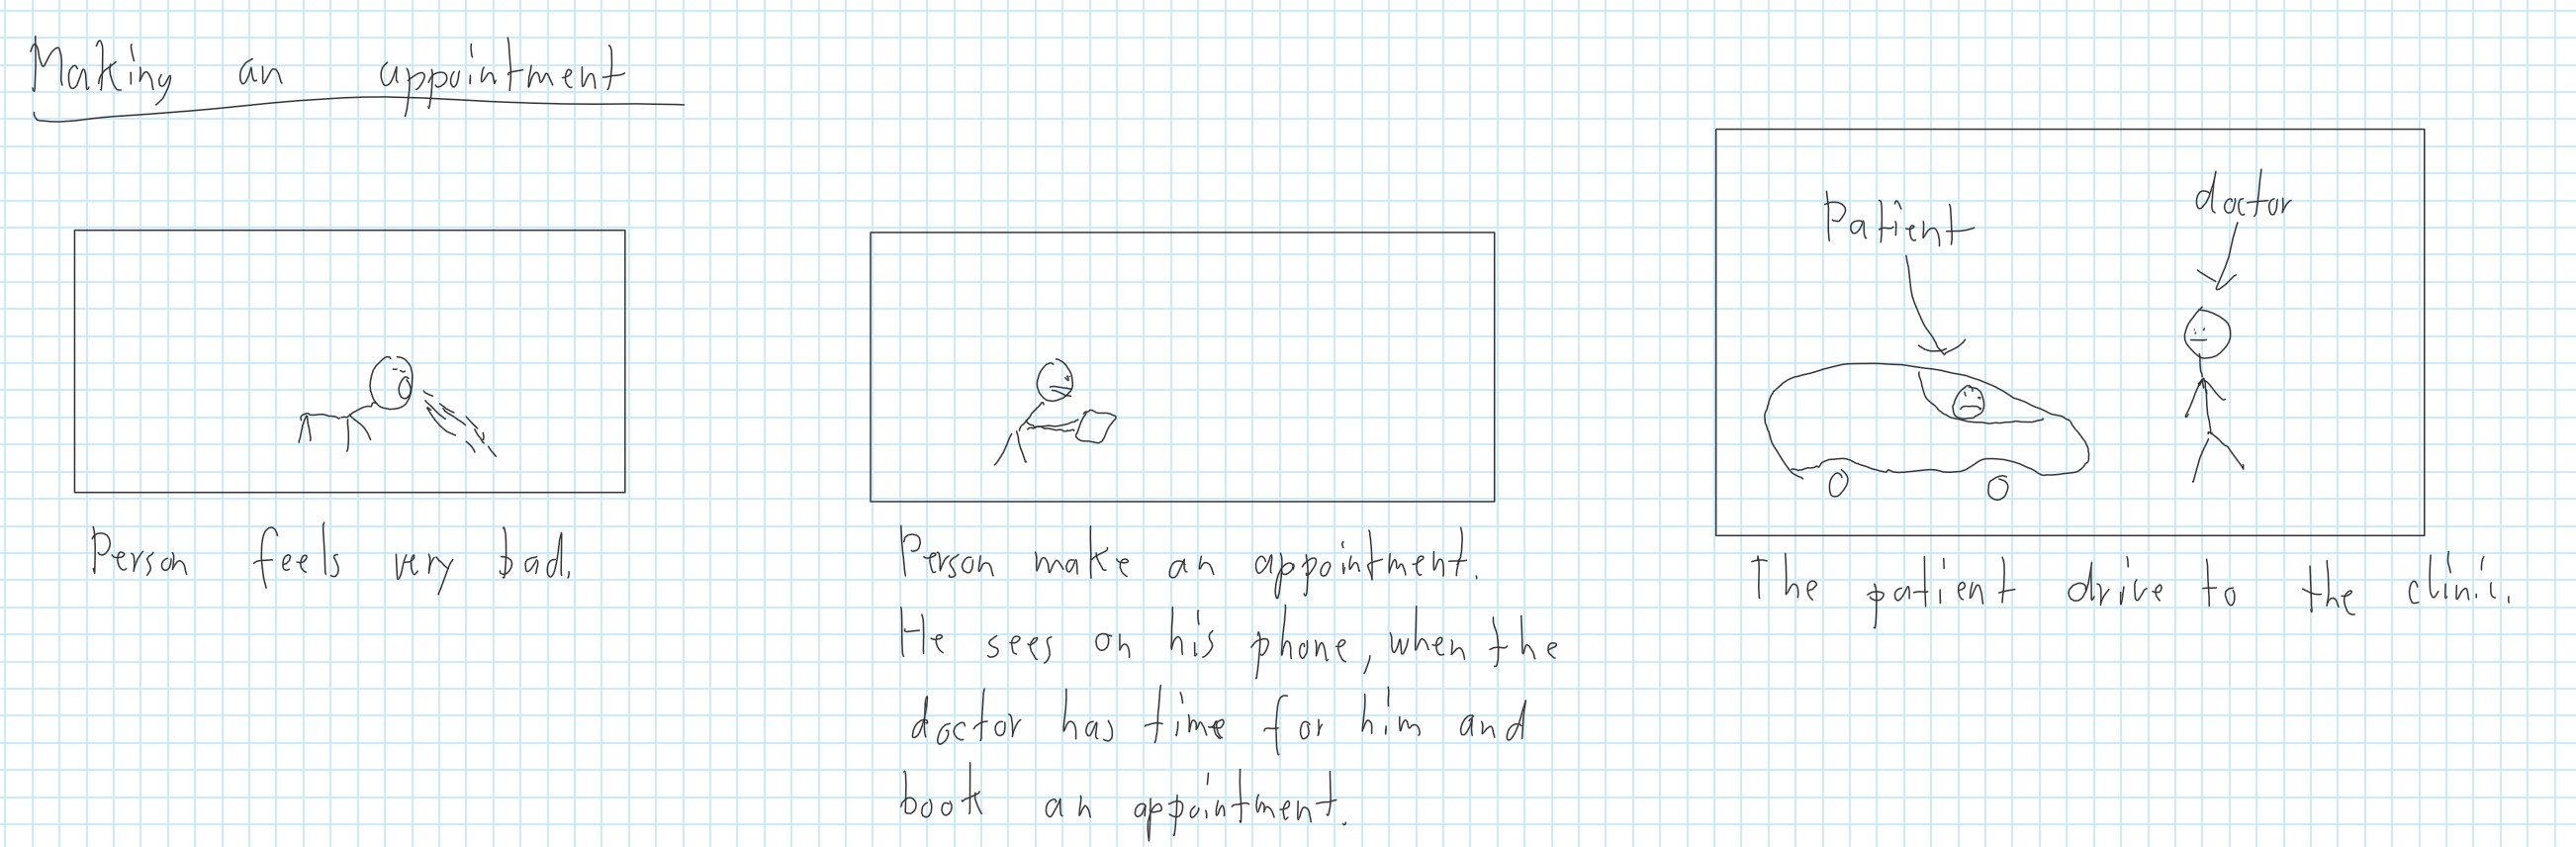 Making an appointment
Patient
doctor
Person feels very bad.
Person make an appointment.
He sees on his phone, when the
doctor has time for him and
book an appointment.
The patient drive to the clinic.